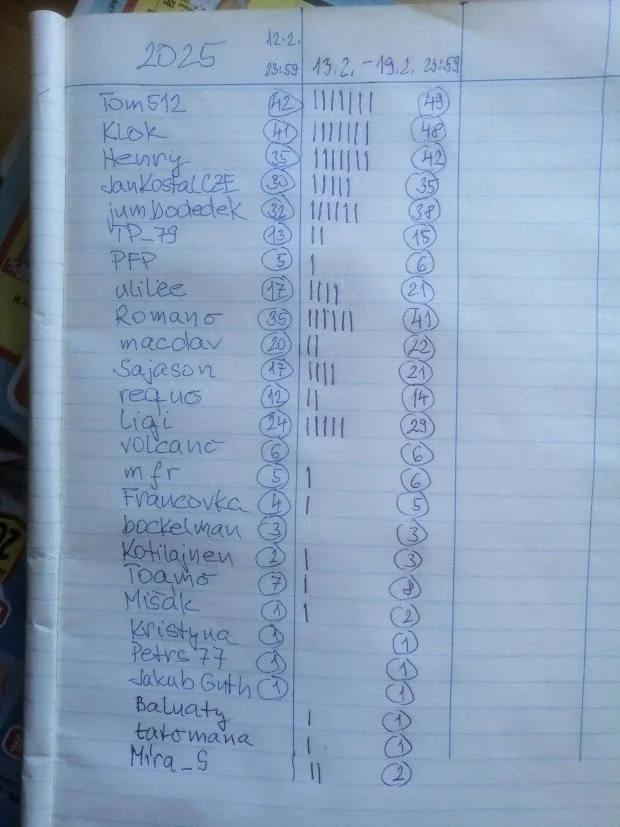 2025 12.2. 23:59 13.2. - 19.2. 23:59
Tom512 42 ||||||| 49
Klok 41 ||||||| 48
Henry 35 ||||||| 42
JanKostalCZE 30 ||||| 35
jumbodedek 32 |||||| 38
TP_79 13 || 15
PFP 5 | 6
ulilee 17 |||| 21
Romano 35 |||||| 41
macdav 20 || 22
Sajason 17 |||| 21
requos 12 || 14
Ligi 24 ||||| 29
volcano 6 6
mfr 5 | 6
Francovka 4 | 5
bockelman 3 3
Kotilajnen 2 | 3
Toamo 7 | 8
Mišák 1 | 2
Kristyna 1 1
Petrs77 1 1
Jakub Guth 1 1
Baluaty | 1
tatomana | 1
Mira_S || 2